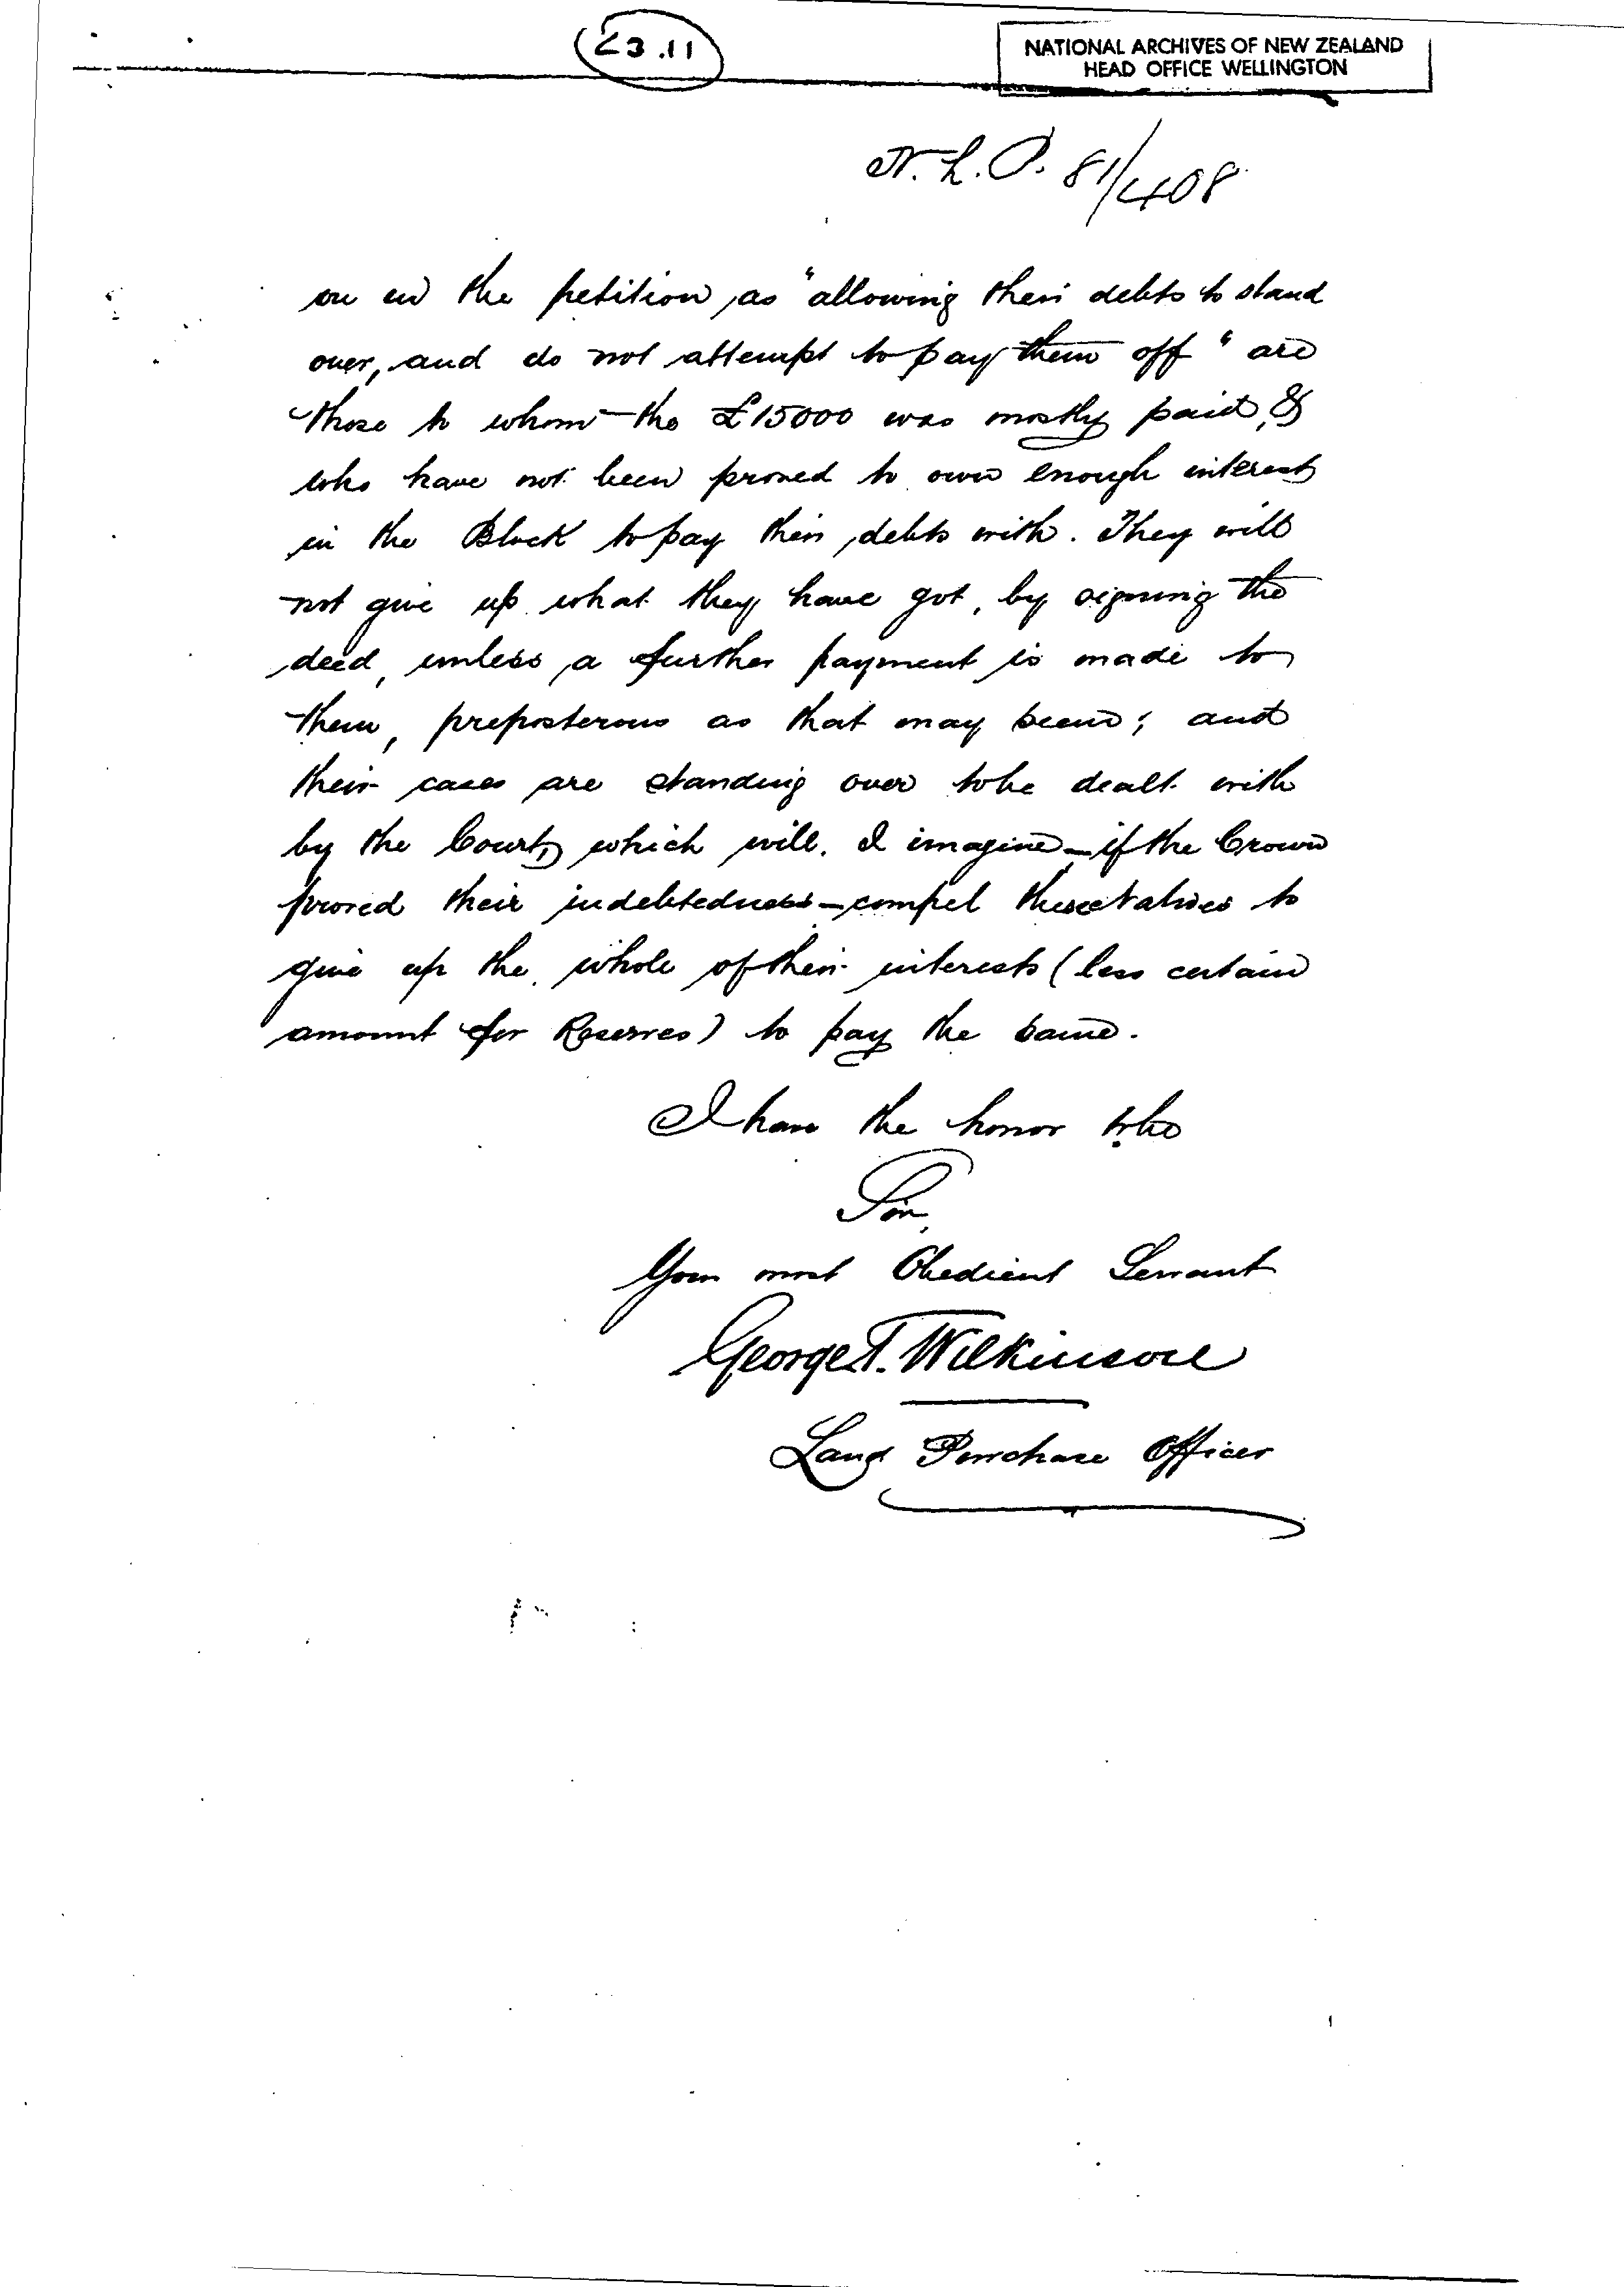 23.11
NATIONAL ARCHIVES OF NEW ZEALAND
HEAD OFFICE WELLINGTON
N.L.P. 81/408
on in the petition, as "allowing their debts to stand
over, and do not attempt to pay them off" are
those to whom the £15000 was mostly paid, &
who have not been proved to own enough interest
in the Block to pay their debts with. They will
not give up what they have got, by signing the
deed, unless a further payment is made to
them, preposterous as that may seem; and
their cases are standing over to be dealt with
by the Court, which will, I imagine - if the Crown
proved their indebtedness - compel these Natives to
give up the whole of their interests (less certain
amount for Reserves) to pay the same.
I have the honor to be
Sir,
Your most Obedient Servant
George T. Wilkinson
Land Purchase Officer